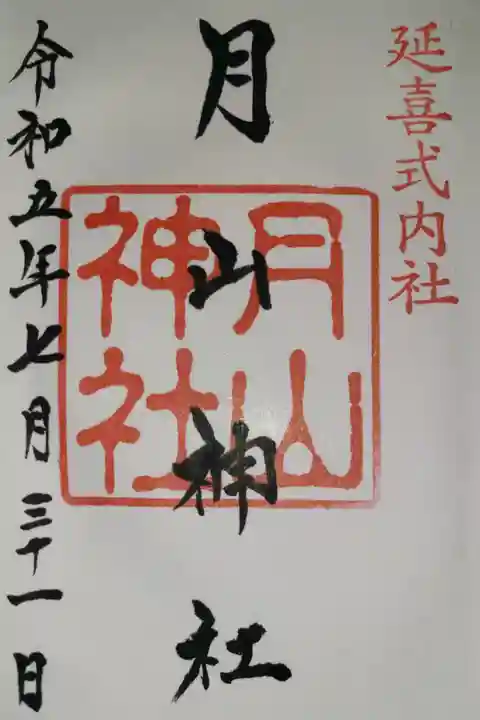 延喜式内社
月山神社
月山
神社
令和五年七月三十一日